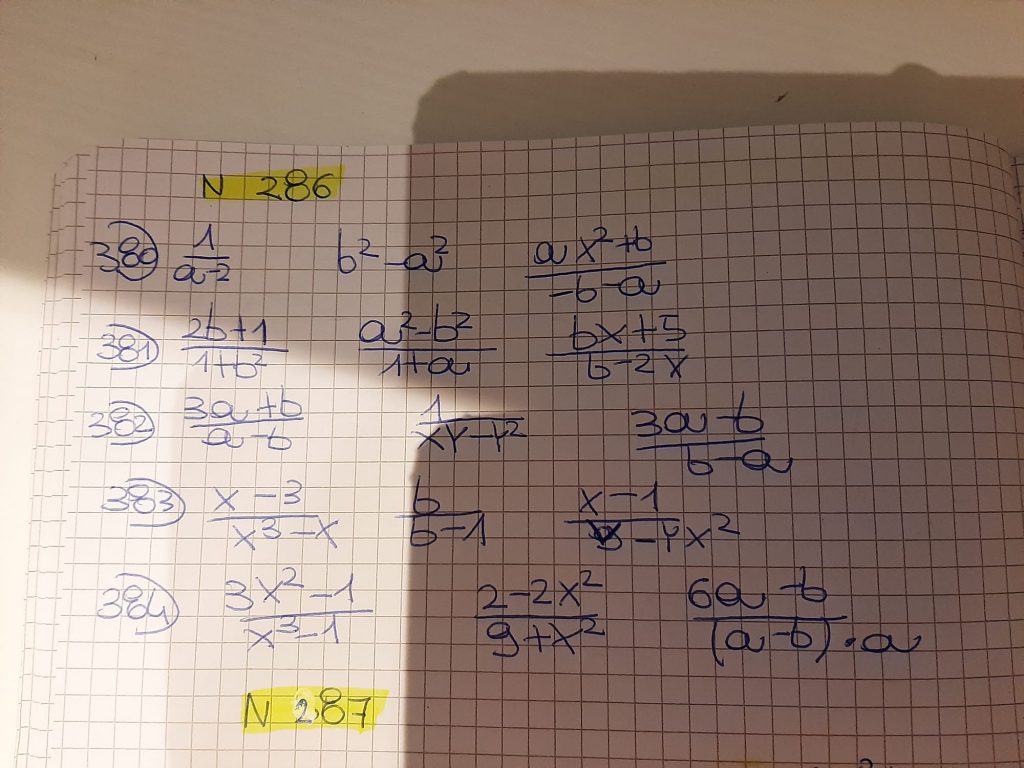 N 286
380 1/(a-2) b²-a² (ax²+b)/(-b-a)
381 (2b+1)/(1+b²) (a²-b²)/(1+a) (bx+5)/(b-2x)
382 (3a+b)/(a-b) 1/(xy-y²) (3a-b)/(b-a)
383 (x-3)/(x³-x) b/(b-1) (x-1)/(-4x²)
384 (3x²-1)/(x³-1) (2-2x²)/(9+x²) (6a-b)/((a-b)·a)
N 287